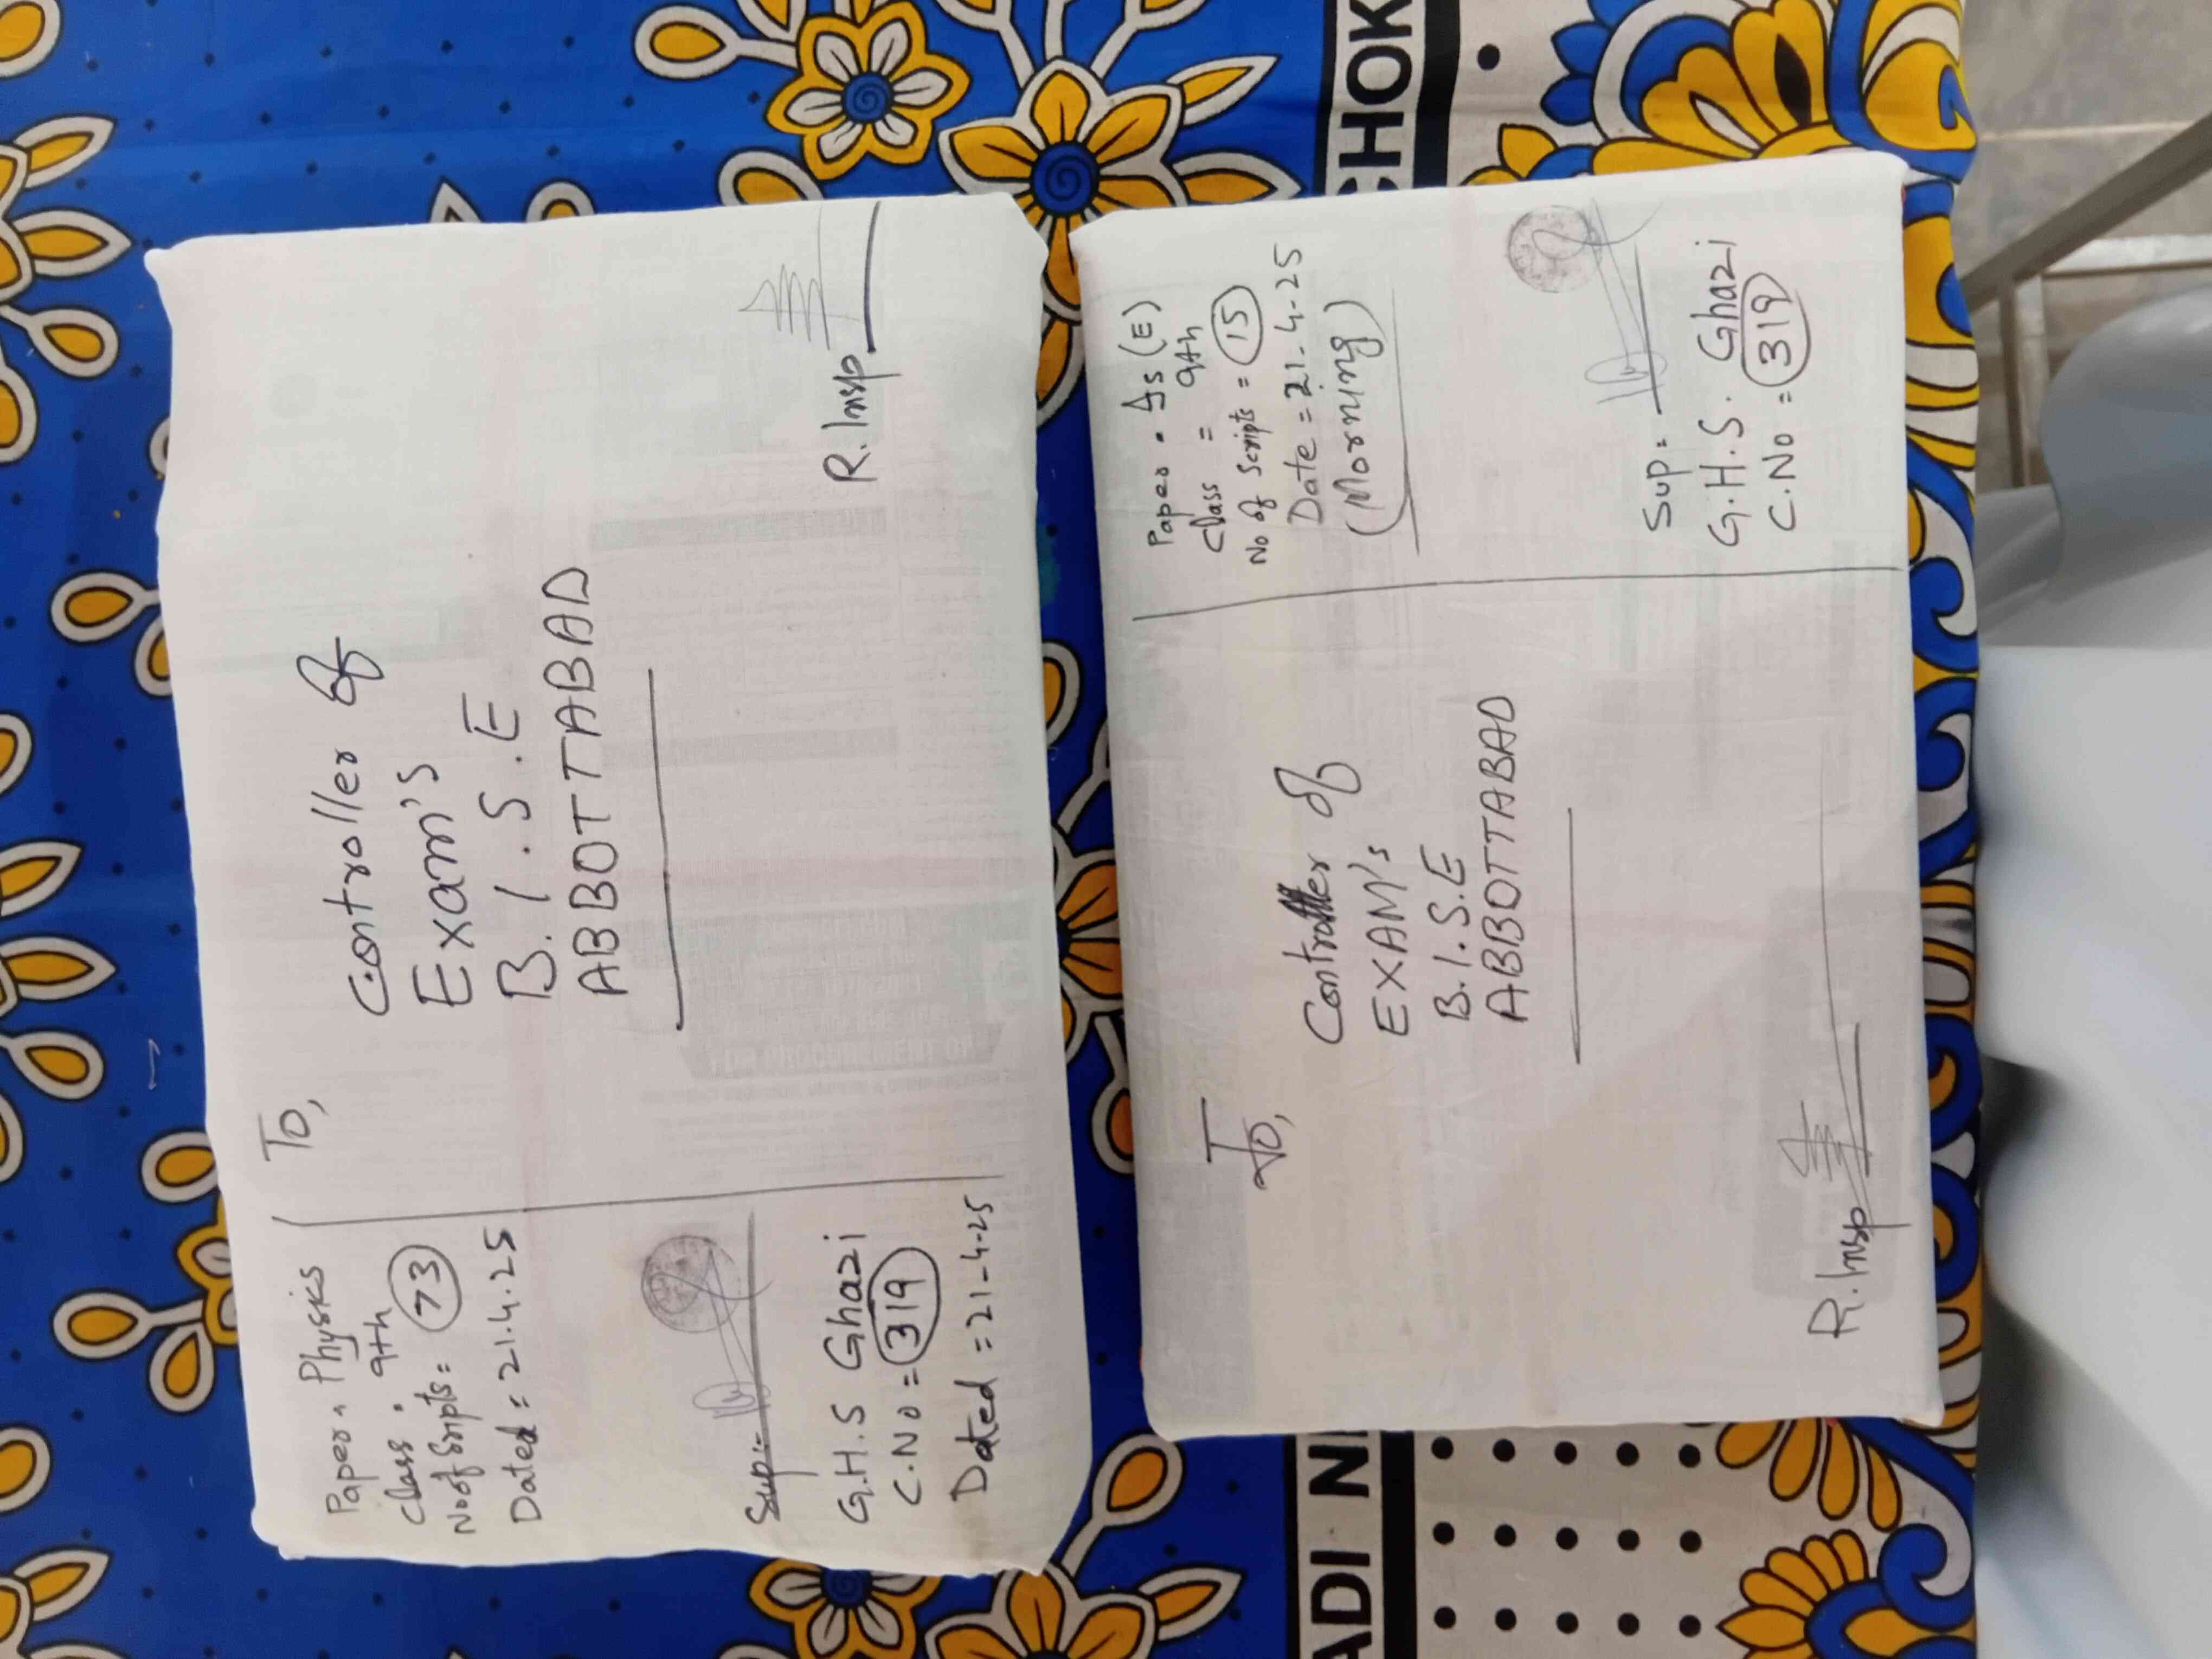 Paper = Physiks
Class = 9th
No of Scripts = 73
Dated = 21.4.25
Sup:-
G.H.S Ghazi
C.No = 319
Dated = 21-4-25
To,
Controller of
Exam's
B.I.S.E
ABBOTTABAD
R.Insp
To,
Controller of
EXAM's
B.I.S.E
ABBOTTABAD
R.Insp
Paper = Is (E)
Class = 9th
No of Scripts = 15
Date = 21-4-25
(Morning)
Sup =
G.H.S. Ghazi
C.No = 319
ADI N
CHOK